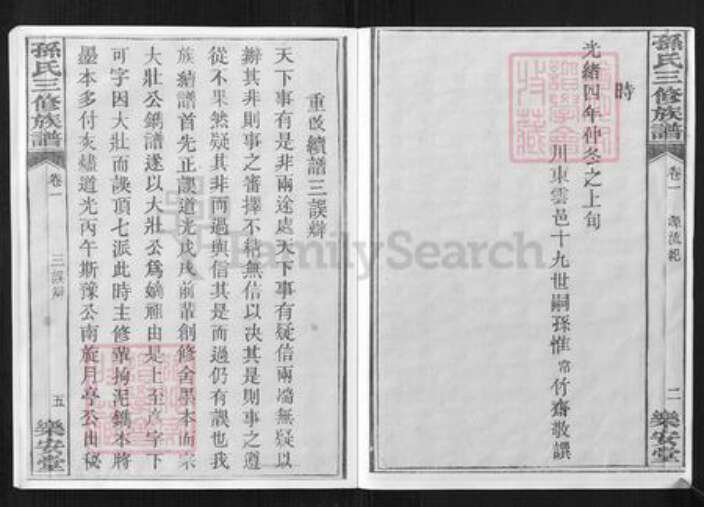 孫氏三修族譜
卷一
源流紀
二
樂安堂
時
光緒四年仲冬之上旬
川東雲邑十九世嗣孫惟常竹齋敬譔
重改續譜三誤辯
天下事有是非兩途處天下事有疑信兩端無疑以
辦其非則事之審擇不精無信以決其是則事之遵
從不果然疑其非而過與信其是而過仍有誤也我
族續譜首先正誤道光戊戌前輩創修舍墨本而宗
大壯公鐫譜遂以大壯公爲嫡祖由是上至彥字下
可字因大壯而誤頂七派此時主修輩拘泥鐫本將
墨本多付灰燼道光丙午斯豫公南旋月亭公由秘
孫氏三修族譜
卷一
三誤辯
五
樂安堂
FamilySearch